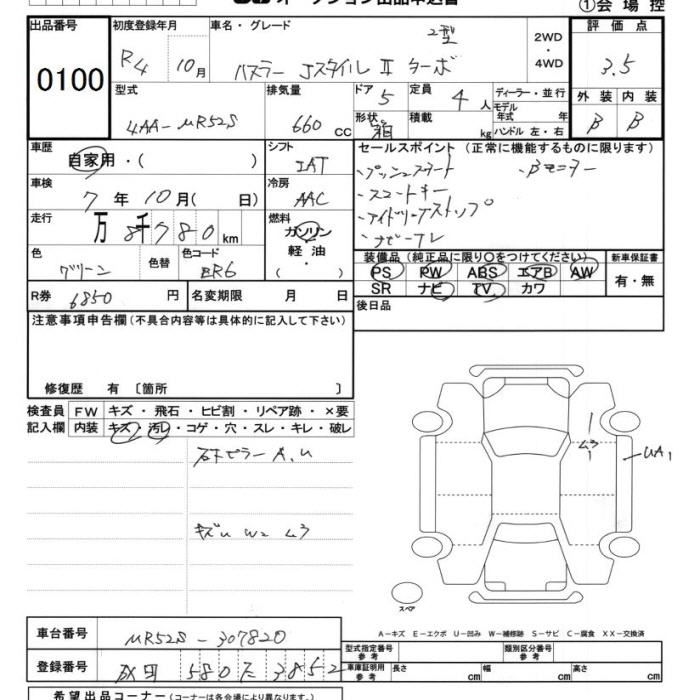 オークション出品申込書
①会場控
出品番号 0100
初度登録年月 R4 10月
車名・グレード ハスラー JスタイルⅡ ターボ 2型
2WD・4WD
評価点 3.5
外装 B 内装 B
型式 4AA-MR52S
排気量 660 cc
ドア 5
定員 4 人
形状 箱
積載 kg
ディーラー・並行
モデル年式 年
ハンドル 左・右
車歴 自家用・( )
シフト IAT
車検 7年10月( 日)
冷房 AAC
走行 万 8千780 km
燃料 ガソリン 軽油・( )
色 グリーン 色替 色コード
R券 6850 円
名変期限 月 日
セールスポイント (正常に機能するものに限ります)
・プッシュスタート
・スマートキー
・アイドリングストップ
・ナビテレ
・Bモニター
装備品 (純正品に限り〇をつけてください)
PS PW ABS エアB AW
SR ナビ TV カワ
新車保証書 有・無
後日品
注意事項申告欄 (不具合内容等は具体的に記入して下さい)
修復歴 有 〔箇所 〕
検査員記入欄
FW キズ・飛石・ヒビ割・リペア跡・×要
内装 キズ・汚レ・コゲ・穴・スレ・キレ・破レ
右ピラー A.U
キズu W2
UA1
スペア
A-キズ E-エクボ U-凹み W-補修跡 S-サビ C-腐食 XX-交換済
車台番号 MR52S-307820
登録番号 580 3852
型式指定番号 参考
類別区分番号 参考
車庫証明用 参考 長さ cm 幅 cm 高さ cm
希望出品コーナー (コーナーは各会場により異なります。)